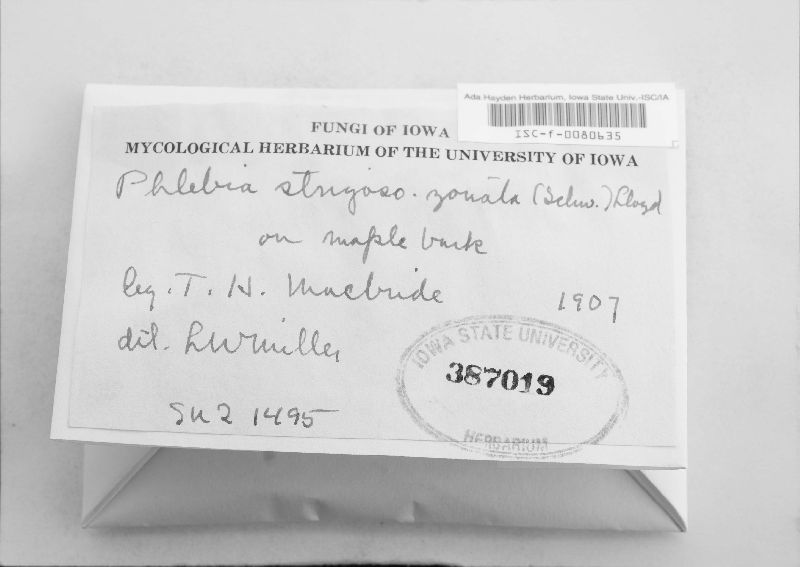 Ada Hayden Herbarium, Iowa State Univ.-ISC/IA
ISC-f-0080635
FUNGI OF IOWA
MYCOLOGICAL HERBARIUM OF THE UNIVERSITY OF IOWA
Phlebia strigoso-zonata (Schw.) Lloyd
on maple bark
leg. T. H. Macbride 1907
det. L W Miller
SUI 1495
IOWA STATE UNIVERSITY
387019
HERBARIUM